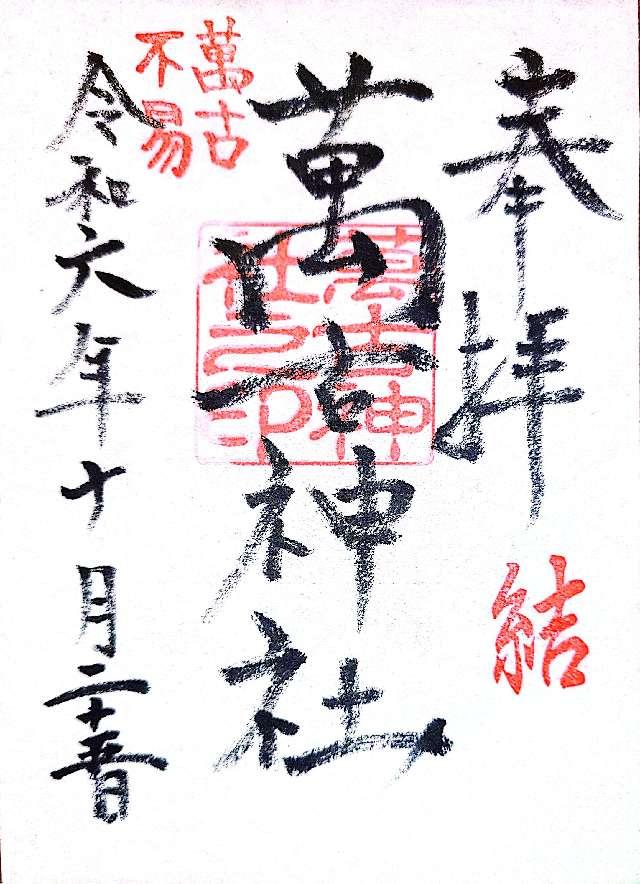 奉拝
結
萬古神社
萬古神
社之印
萬古
不易
令和六年十月二十五日